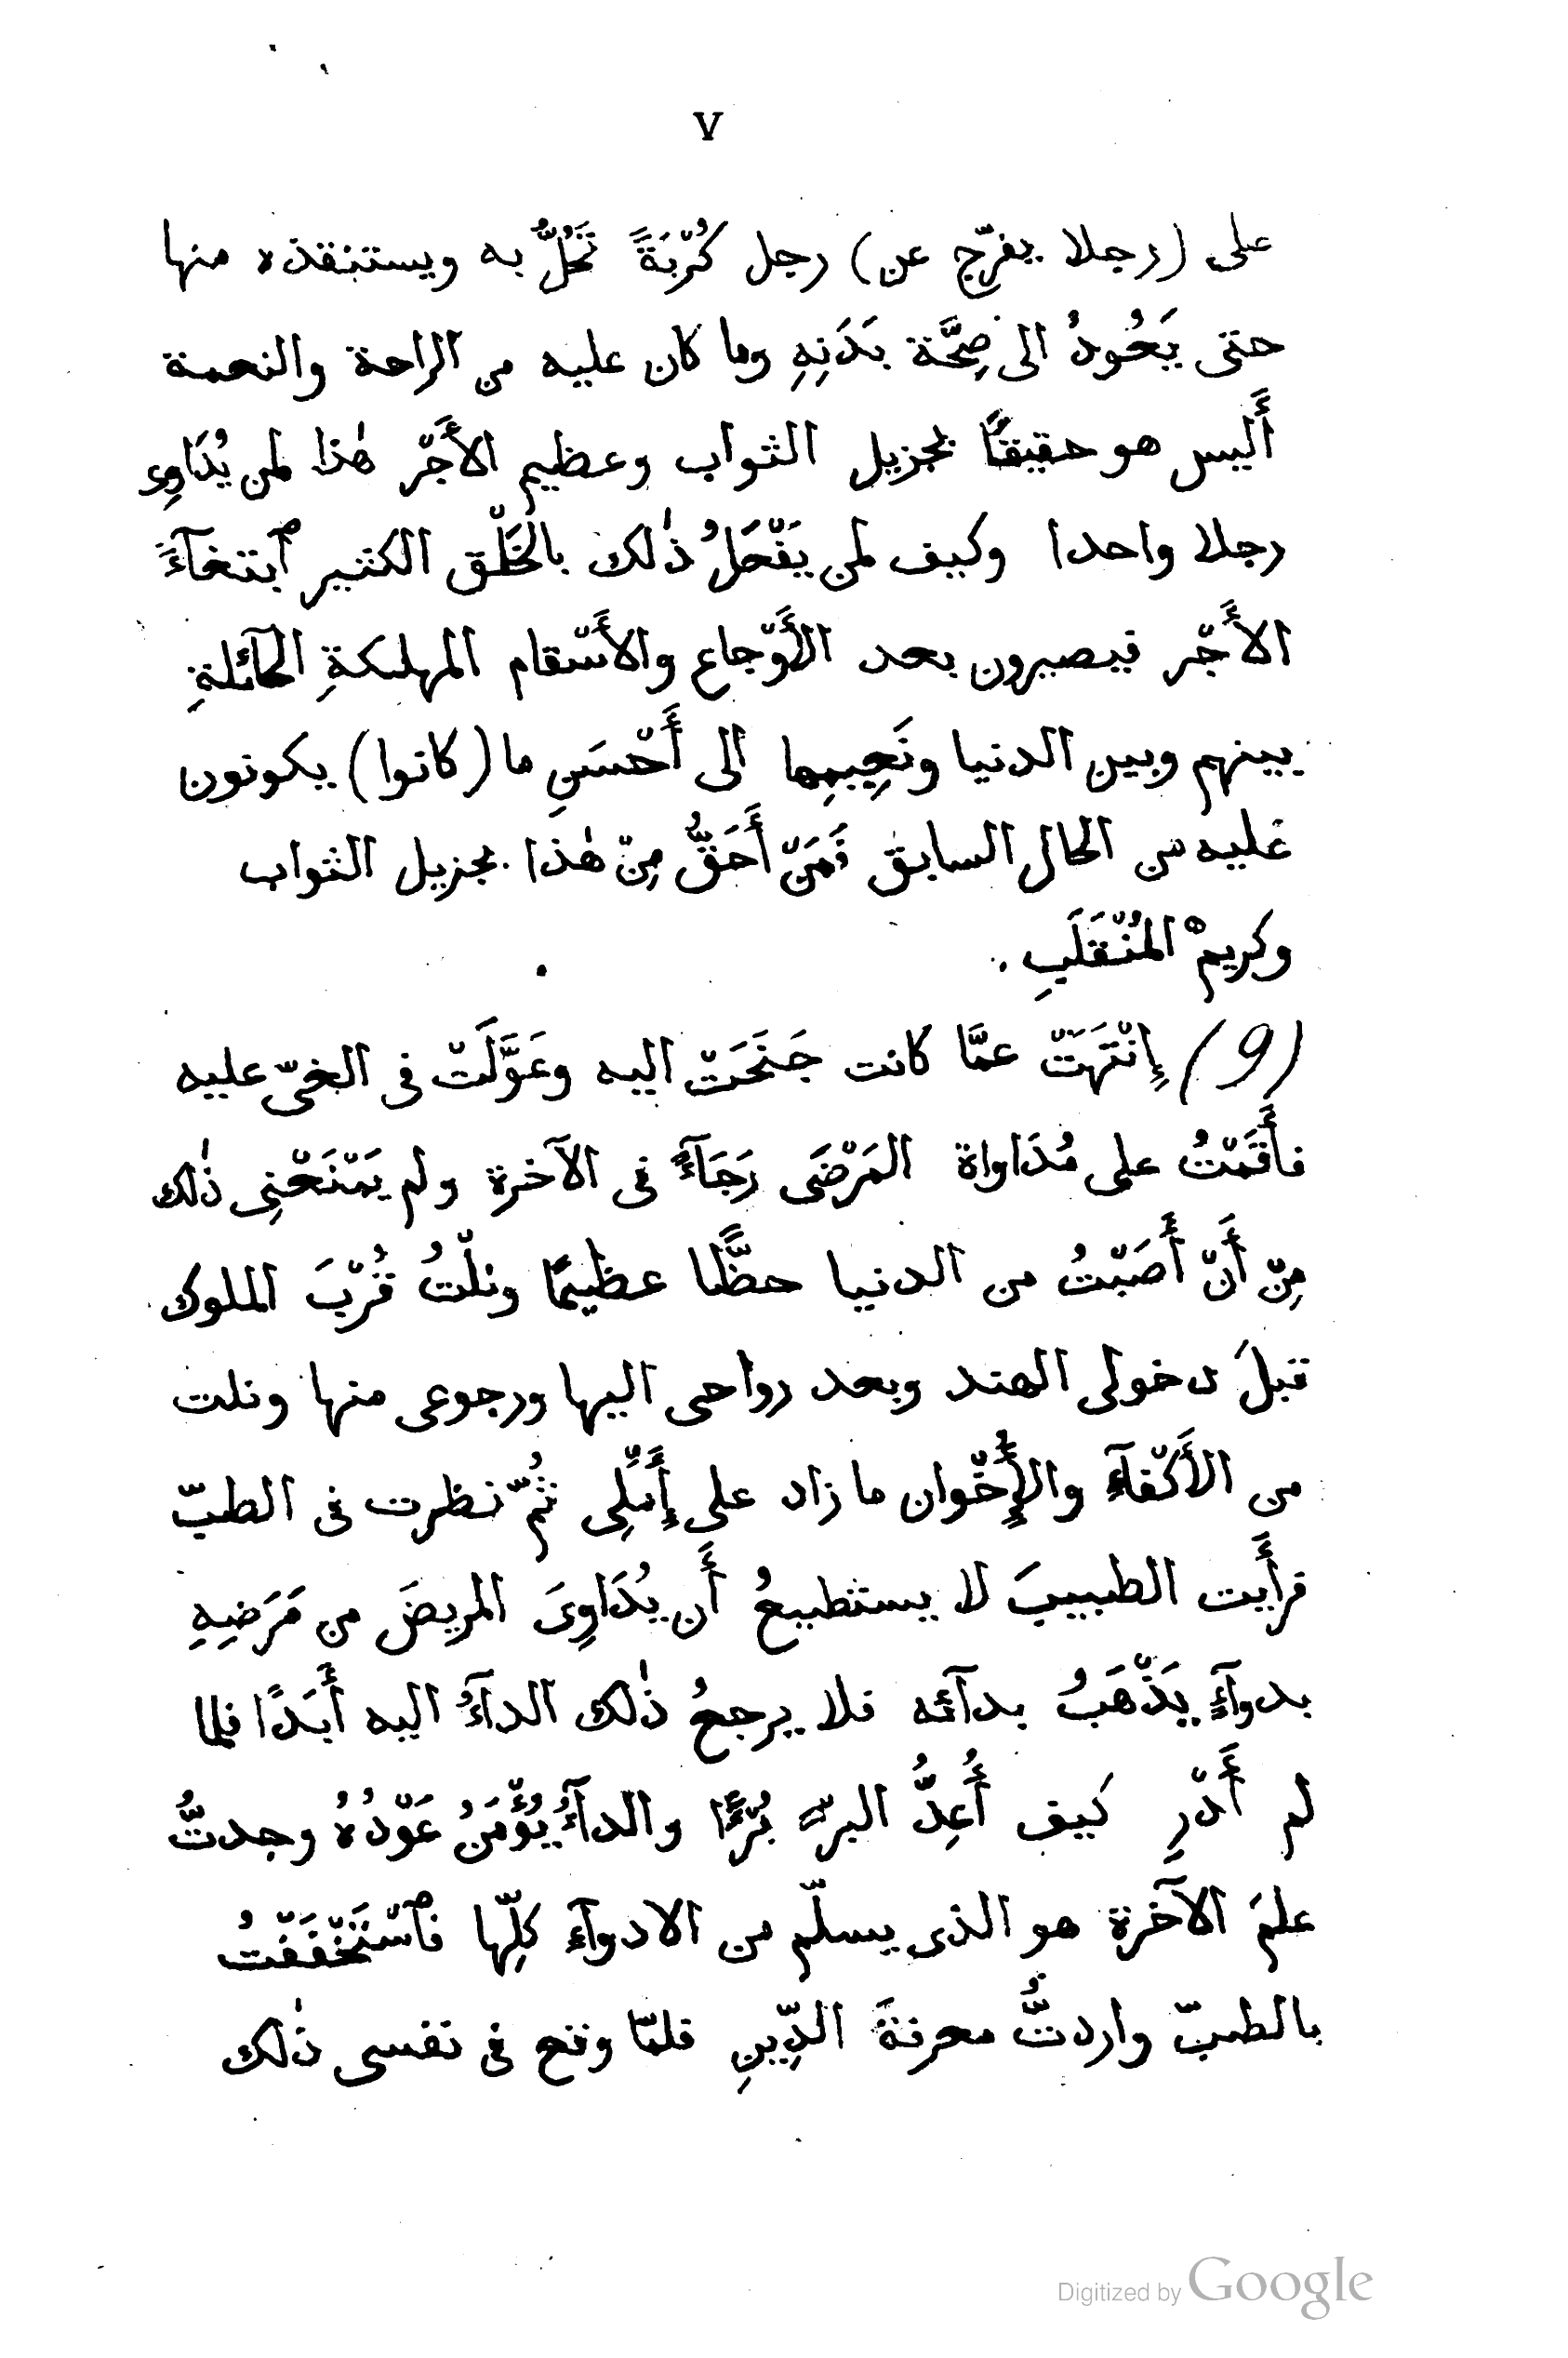 ٧
على (رجلا يفرّج عن) رجل كُرْبَةً تَحُلُّ به ويستنقذه منها
حتى يَعُودُ الى صِحَّة بَدَنِهِ وما كان عليه من الراحة والنعمة
أَليس هو حقيقًا بجزيل الثواب وعظيم الأَجْر هٰذا لمن يُدَاوِى
رجلا واحدا وكيف لمن يَفْعَلُ ذٰلك بالخَلْق الكثير ٱبتغآءً
الأَجْر فيصيرون بعد الأَوْجاع والأَسْقام المهلكةِ الحآئلةِ
بينهم وبين الدنيا ونَعِيمِها الى أَحْسَنِ ما (كانوا) يكونون
عليه من الحال السابق فَمَنْ أَحَقُّ مِنْ هٰذا بجزيل الثواب
وكريم المُنْقَلَبِ .
(9) إِنْتَهَتْ عمَّا كانت جَنَحَتْ اليه وعَوَّلَتْ فى الغىّ عليه
فأَقَمْتُ على مُدَاواة المَرْضَى رَجَآءً فى الآخرة ولم يَمْنَعْنِى ذٰلك
مِنْ أَنْ أَصَبْتُ من الدنيا حظًّا عظيمًا ونلْتُ قُرْبَ الملوك
قبلَ دخولى الهند وبعد رواحى اليها ورجوعى منها ونلت
من الأَكْفآءِ والإِخْوان ما زاد على أَمَلِى ثُمّ نظرت فى الطبّ
فرأَيت الطبيبَ لا يستطيعُ أَن يُدَاوِىَ المريضَ من مَرَضِهِ
بدوآءٍ يَذْهَبُ بدآئه فلا يرجعُ ذٰلك الدآءُ اليه أَبَدًا فلما
لم أَدْرِ كيف أُعِدُّ البرء بُرْءًا والدآءُ يُؤْمَنُ عَوْدُهُ وجدتُّ
علمَ الآخرة هو الذى يسلّم من الادوآءِ كلِّها فٱسْتَخْفَفْتُ
بالطبّ واردتُّ معرفةَ الدِّينِ فلمّا وقع فى نفسى ذٰلك
Digitized by Google